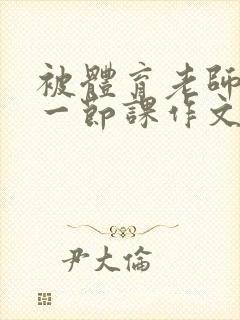 被體育老師
一節課作文
尹大倫